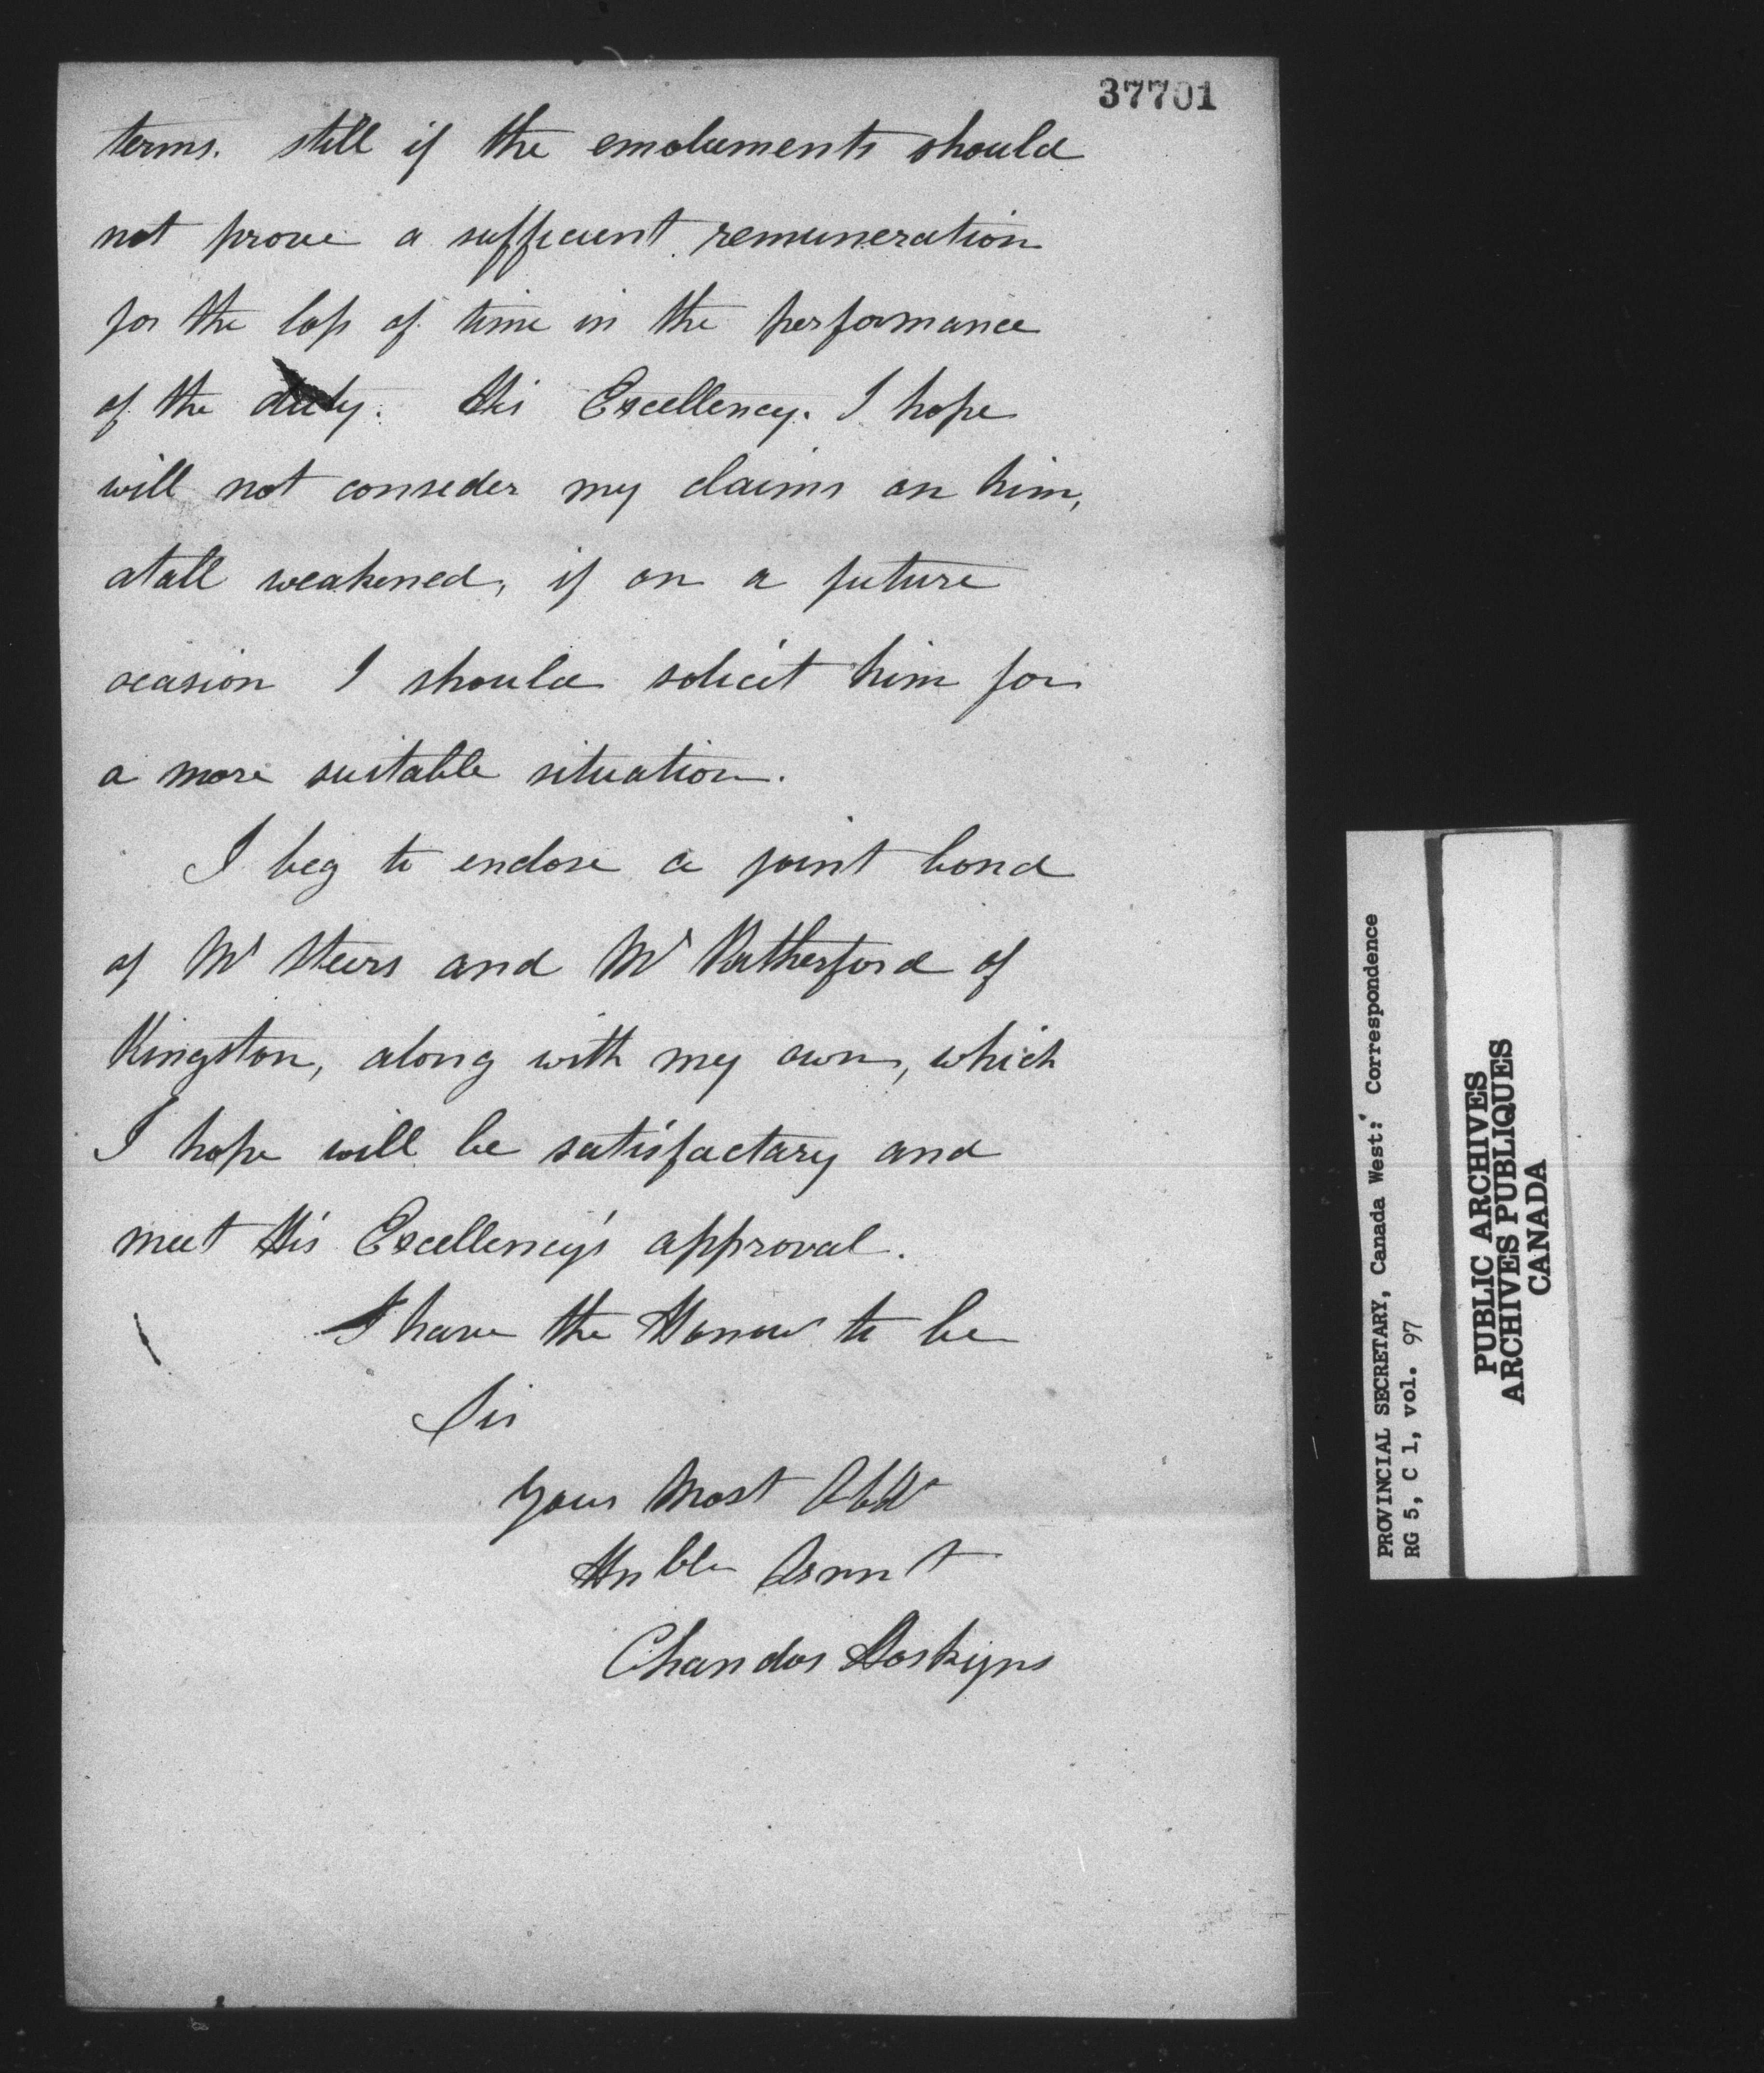 37701
terms. still if the emoluments should
not prove a sufficient remuneration
for the loss of time in the performance
of the duty. His Excellency. I hope
will not conseder my claims on him,
atall weakened, if on a future
ocasion I should solicit him for
a more suitable situation.
I beg to enclose a joint bond
of Mr Steers and Mr Rutherford of
Kingston, along with my own, which
I hope will be satisfactory and
meet His Excellency's approval.
I have the Honour to be
Sir
Your Most Obdt
Hnble Servnt
Chandos Hoskyns
PROVINCIAL SECRETARY, Canada West: Correspondence
RG 5, C 1, vol. 97
PUBLIC ARCHIVES
ARCHIVES PUBLIQUES
CANADA